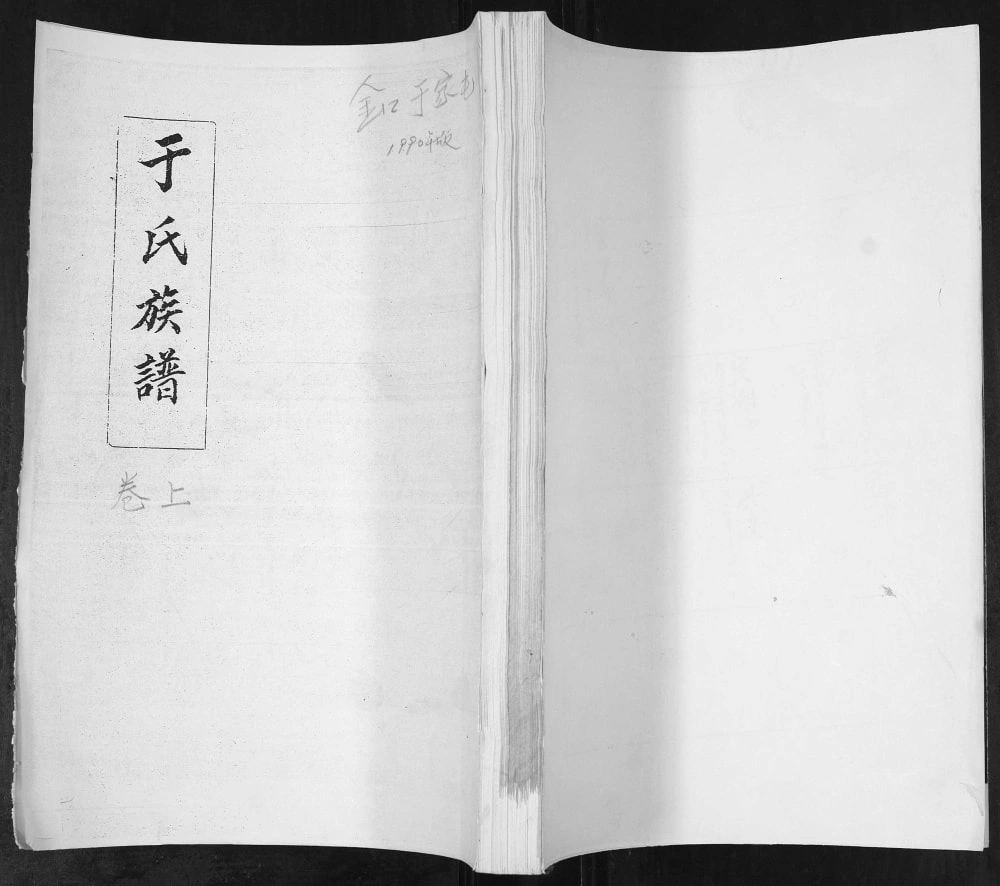 于氏族譜
卷上
金口于家
1990年版